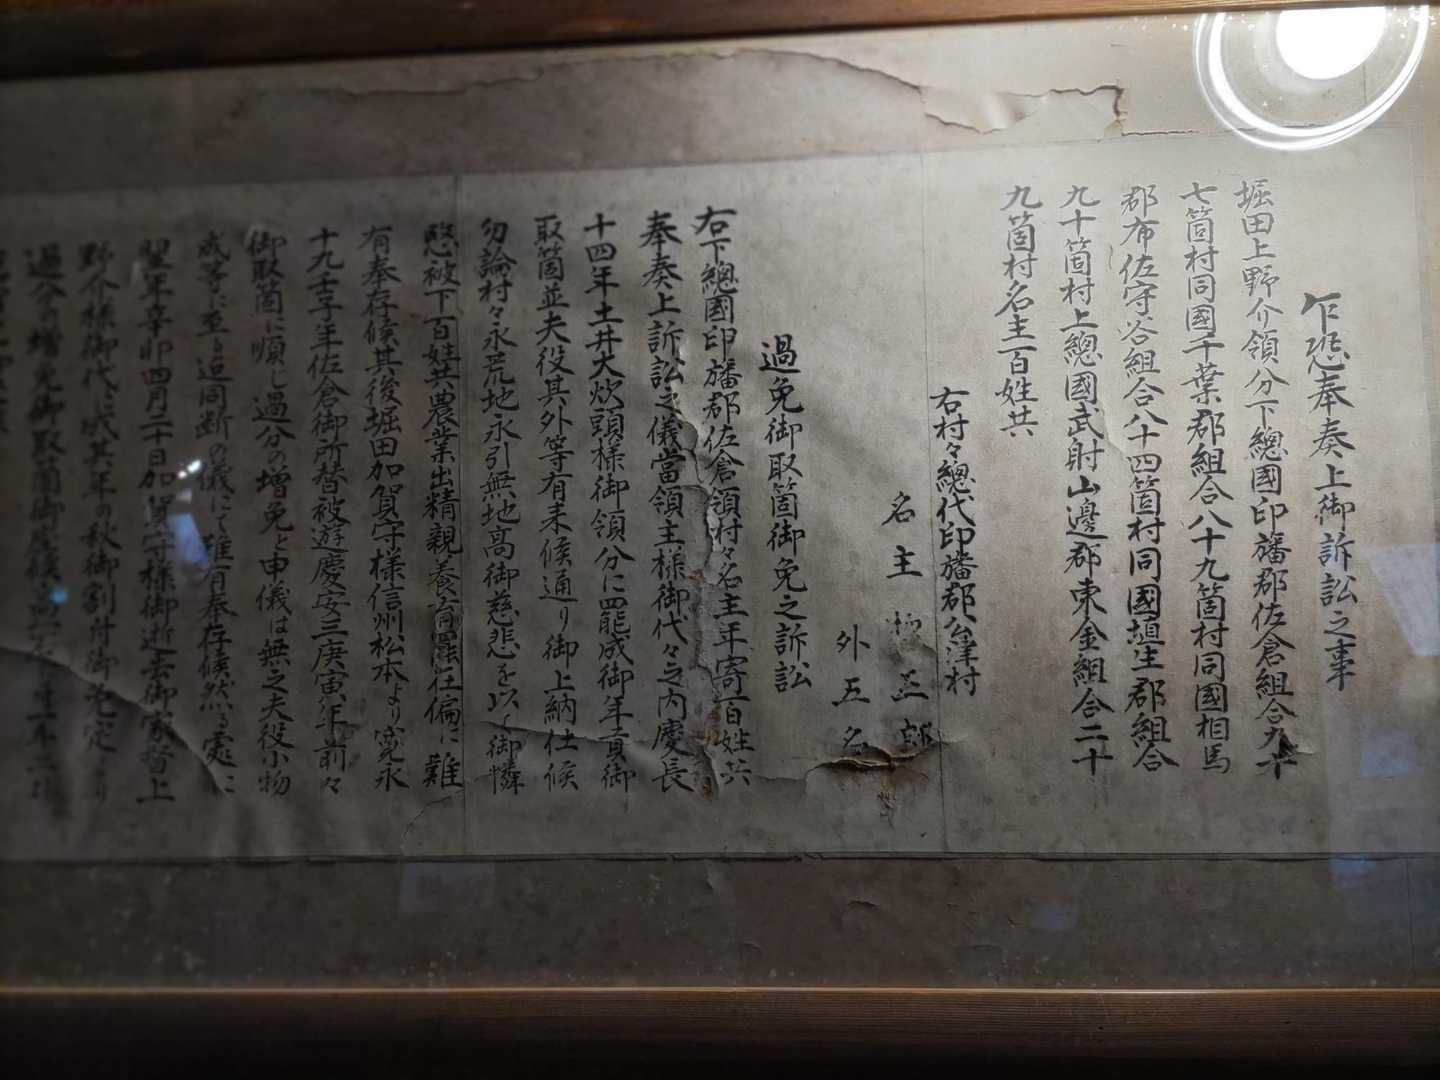 乍恐奉奏上御訴訟之事
堀田上野介領分下總國印旛郡佐倉組合九十
七箇村同國千葉郡組合八十九箇村同國相馬
郡布佐守谷組合八十四箇村同國埴生郡組合
九十箇村上總國武射山邊郡東金組合二十
九箇村名主百姓共
右村々總代印旛郡公津村
名主
郎
外五名
過免御取箇御免之訴訟
右下總國印旛郡佐倉領村々名主年寄百姓共
奉奏上訴訟之儀當領主様御代々之内慶長
十四年土井大炊頭様御領分に罷成御年貢御
取箇並夫役其外等有来候通り御上納仕候
勿論村々永荒地永引無地高御慈悲を以て御憐
愍被下百姓共農業出精親養育罷在偏に難
有奉存候其後堀田加賀守様信州松本より寛永
十九壬子年佐倉御所替被遊慶安三庚寅年前々
御取箇に順し過分の増免と申儀は無之夫役小物
成等に至る迄同断の儀にて難有奉存候然る處に
翌年辛卯四月二十日加賀守様御逝去御家督上
野介様御代に成其年の秋御割付御免定より
過分の増免御取箇御座候